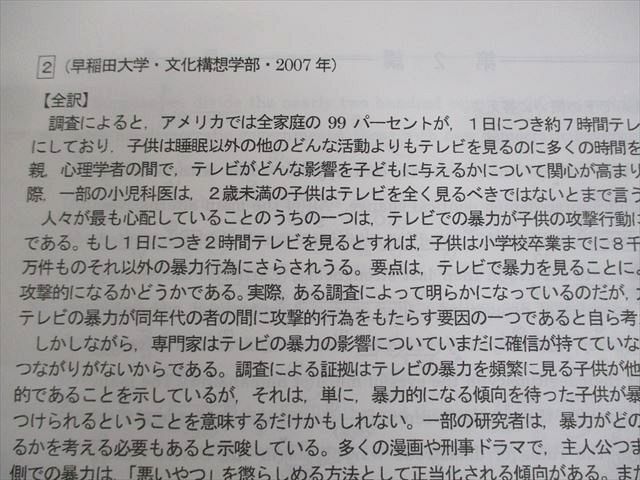 2 (早稲田大学・文化構想学部・2007 年)
【全訳】
調査によると，アメリカでは全家庭の 99 パーセントが，１日につき約７時間テレ
にしており，子供は睡眠以外の他のどんな活動よりもテレビを見るのに多くの時間を
親，心理学者の間で，テレビがどんな影響を子どもに与えるかについて関心が高まり
際，一部の小児科医は，２歳未満の子供はテレビを全く見るべきではないとまで言う
人々が最も心配していることのうちの一つは，テレビでの暴力が子供の攻撃行動に
である。もし１日につき２時間テレビを見るとすれば，子供は小学校卒業までに８千
万件ものそれ以外の暴力行為にさらされうる。要点は，テレビで暴力を見ることに
攻撃的になるかどうかである。実際，ある調査によって明らかになっているのだが，
テレビの暴力が同年代の者の間に攻撃的行為をもたらす要因の一つであると自ら考
しかしながら，専門家はテレビの暴力の影響についていまだに確信が持てていな
つながりがないからである。調査による証拠はテレビの暴力を頻繁に見る子供が他
的であることを示しているが，それは，単に，暴力的になる傾向を待った子供が暴
つけられるということを意味するだけかもしれない。一部の研究者は，暴力がどの
るかを考える必要もあると示唆している。多くの漫画や刑事ドラマで，主人公つま
側での暴力は，「悪いやつ」を懲らしめる方法として正当化される傾向がある。また